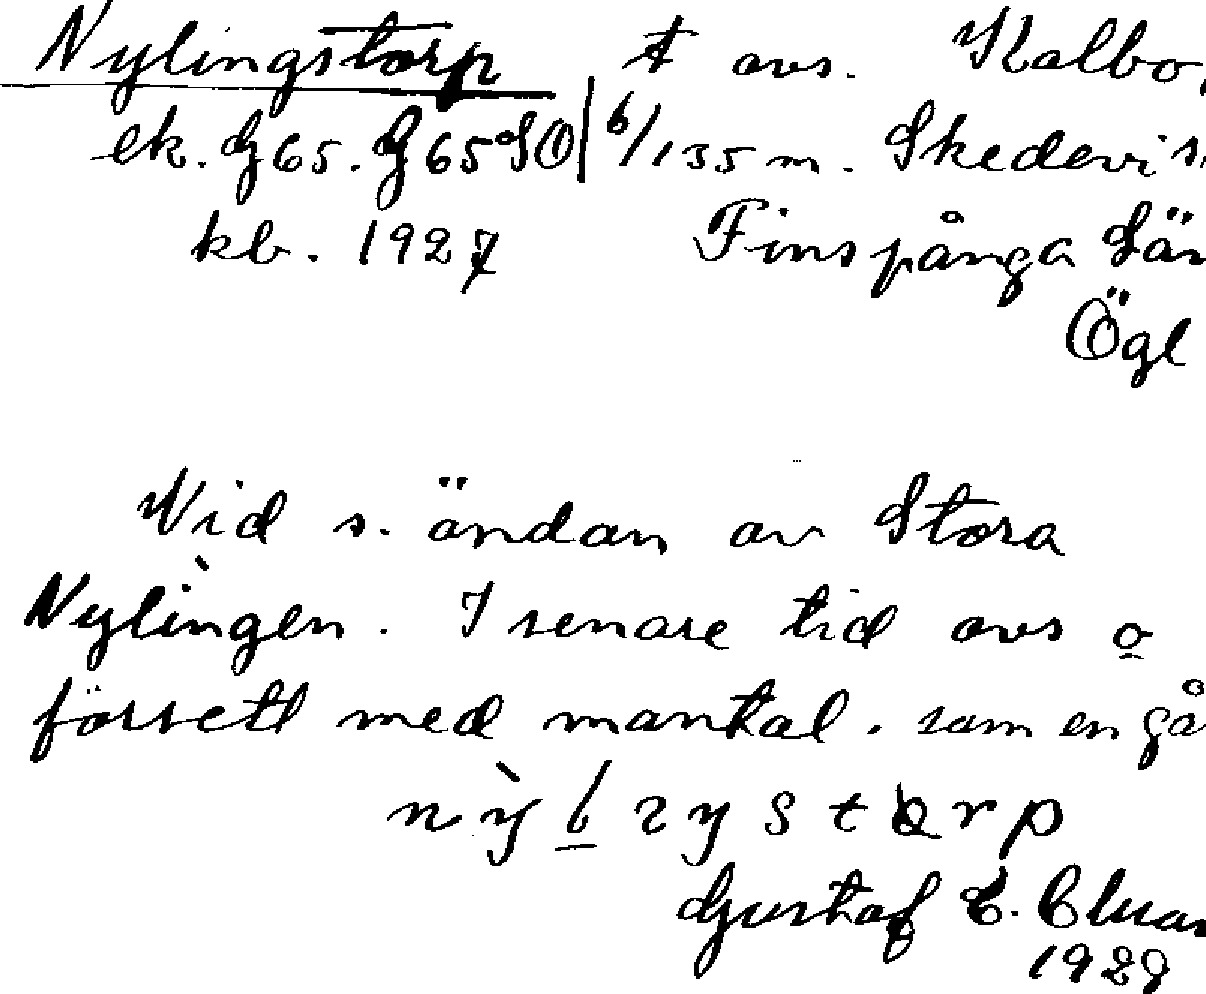 Nylingstorp t avs. Kalbo,
ek. G 65. G 65 SO | 6/135 m. Skedevi s.
kb. 1927 Finspånga Län
Ögl
Vid s. ändan av Stora
Nylìngen. I senare tid avs o
försett med mantal. som en gå
Gustaf E.
1929